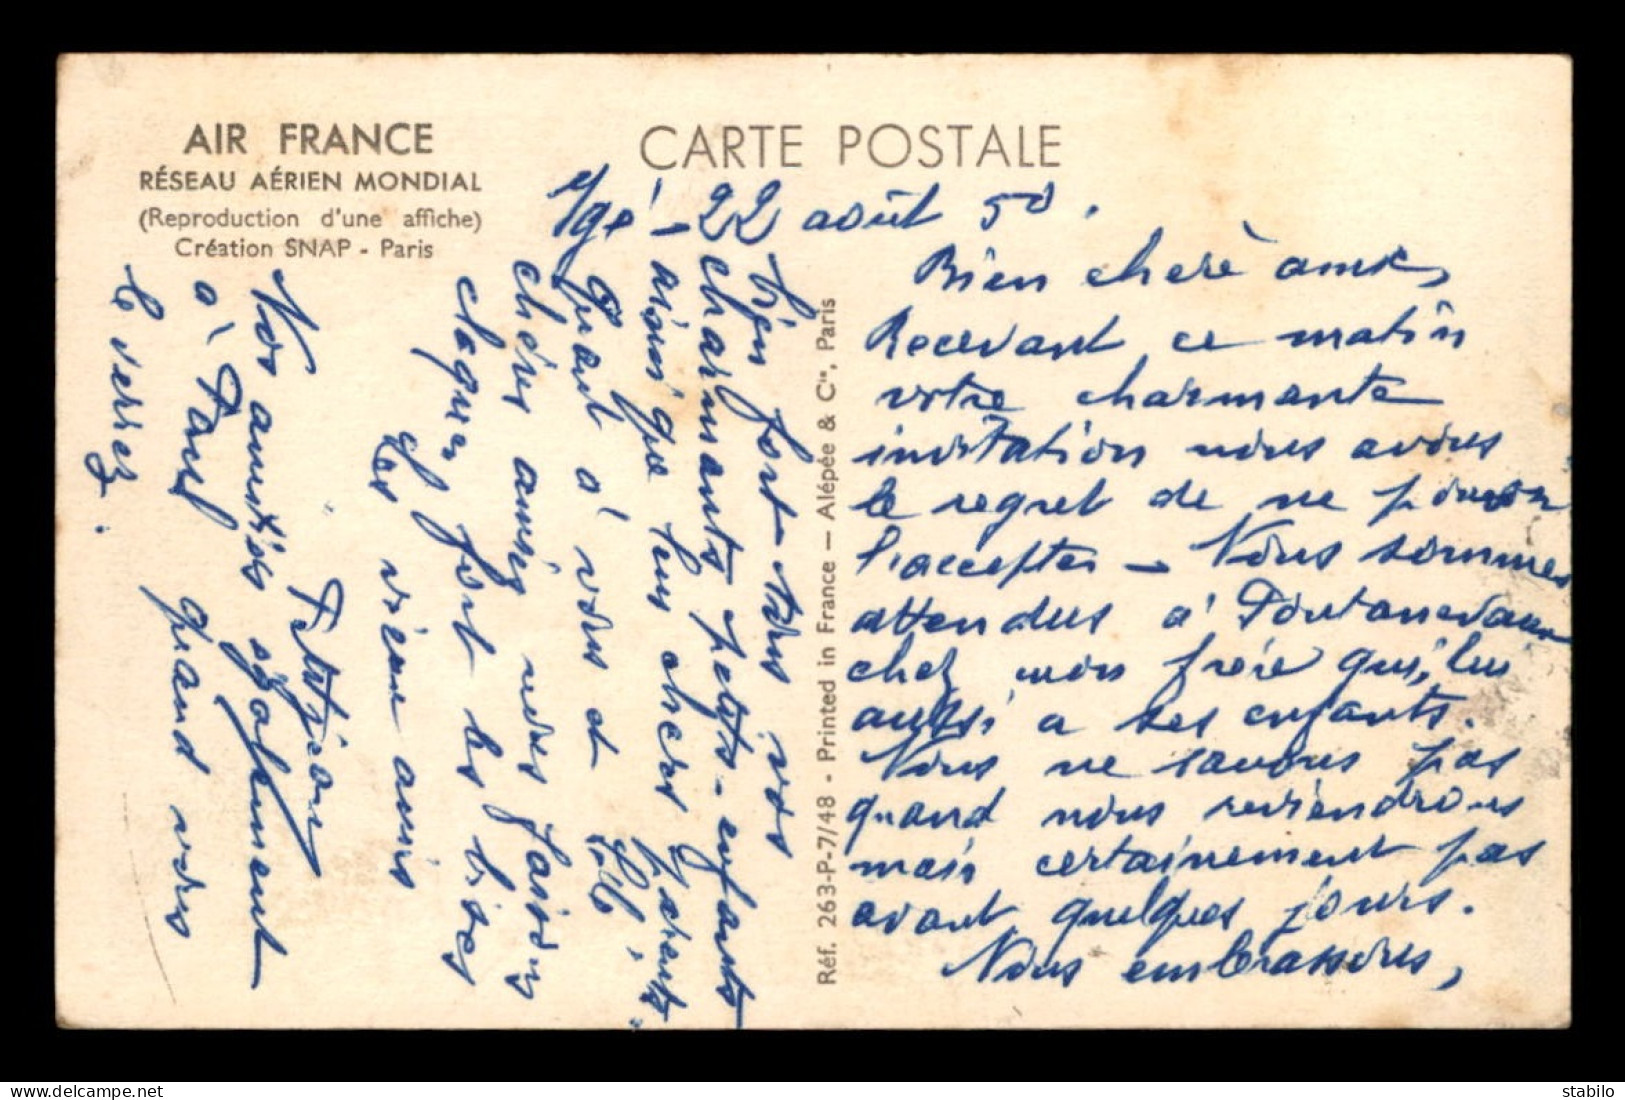 AIR FRANCE
RÉSEAU AÉRIEN MONDIAL
(Reproduction d'une affiche)
Création SNAP - Paris
CARTE POSTALE
Igé - 22 août 50.
Bien chère amie,
Recevant ce matin
votre charmante
invitation nous avons
le regret de ne pouvoir
l'accepter - Nous sommes
attendus à Fontanevaux
chez mon frère qui, lui
aussi a ses enfants.
Nous ne savons pas
quand nous reviendrons
mais certainement pas
avant quelques jours.
Nous embrassons,
bien fort tous vos
charmants petits-enfants
ainsi que leurs chers parents
Quant à vous et
chères amies nous faisons
claquer fort les bises
des vieux amis
Nos amitiés également
à Paul quand vous
le verrez.
Réf. 263-P-7/48 - Printed in France - Alépée & Cie, Paris
stabilo